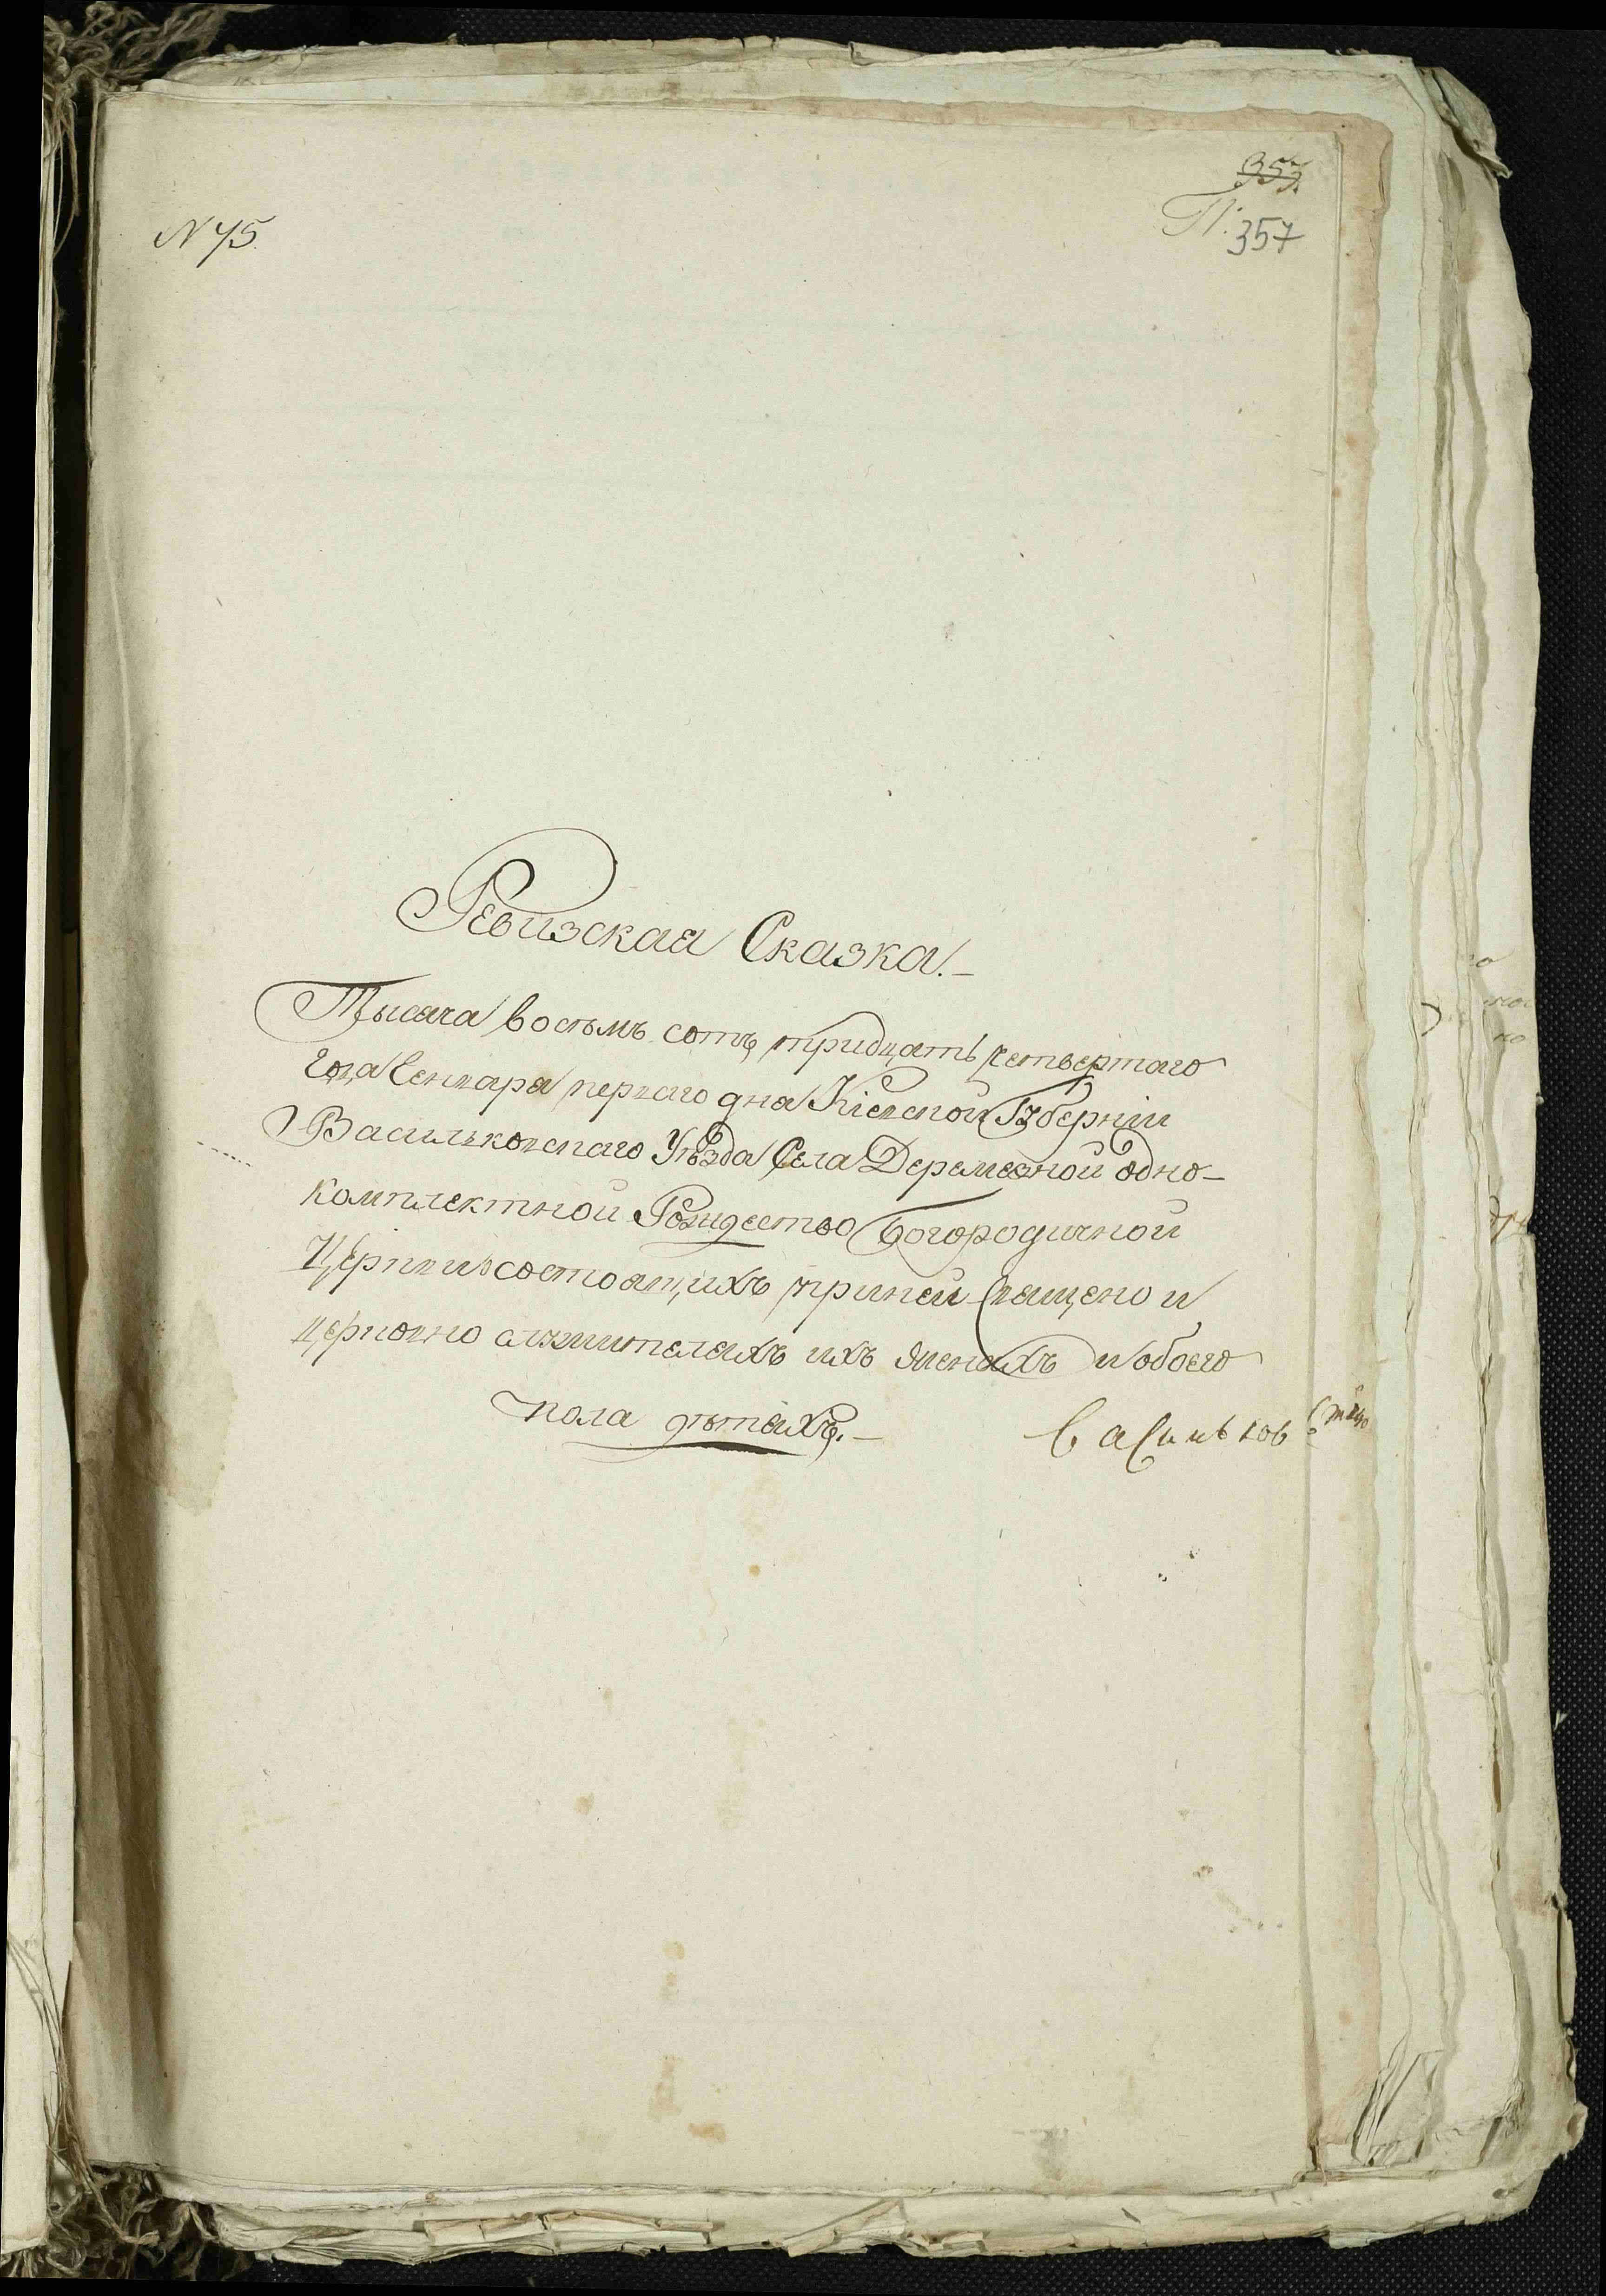 N 45.
357.
П. 357
Ревизская Сказка.
Тысяча восемь сотъ тридцать четвертаго
года Сентября перваго дня Кіевской Губерніи
Васильковскаго Уѣзда Села Деремезной одно-
комплектной Рождество Богородичной
Церкви о состоящихъ при ней Священо и
церковно служителяхъ ихъ женахъ и обоего
пола дѣтяхъ.